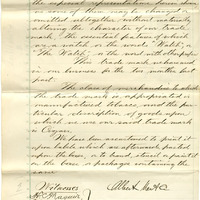 of them may be changed or
omitted altogether without materially
altering the character of our trade
mark, the essential feature of which
is a watch or the words
This trade mark we have used
in our business for the two months last
past.
The class of merchandise to which
the trade mark is appropriated is
manufactured tobacco, and the
particular description of goods upon
which we use our said trade mark
is Cigars.
We have been accustomed to print it
upon labels which are afterward pasted
upon the boxes, or to brand, stencil or paint it
on the boxes or packages containing the
same.
Witnesses